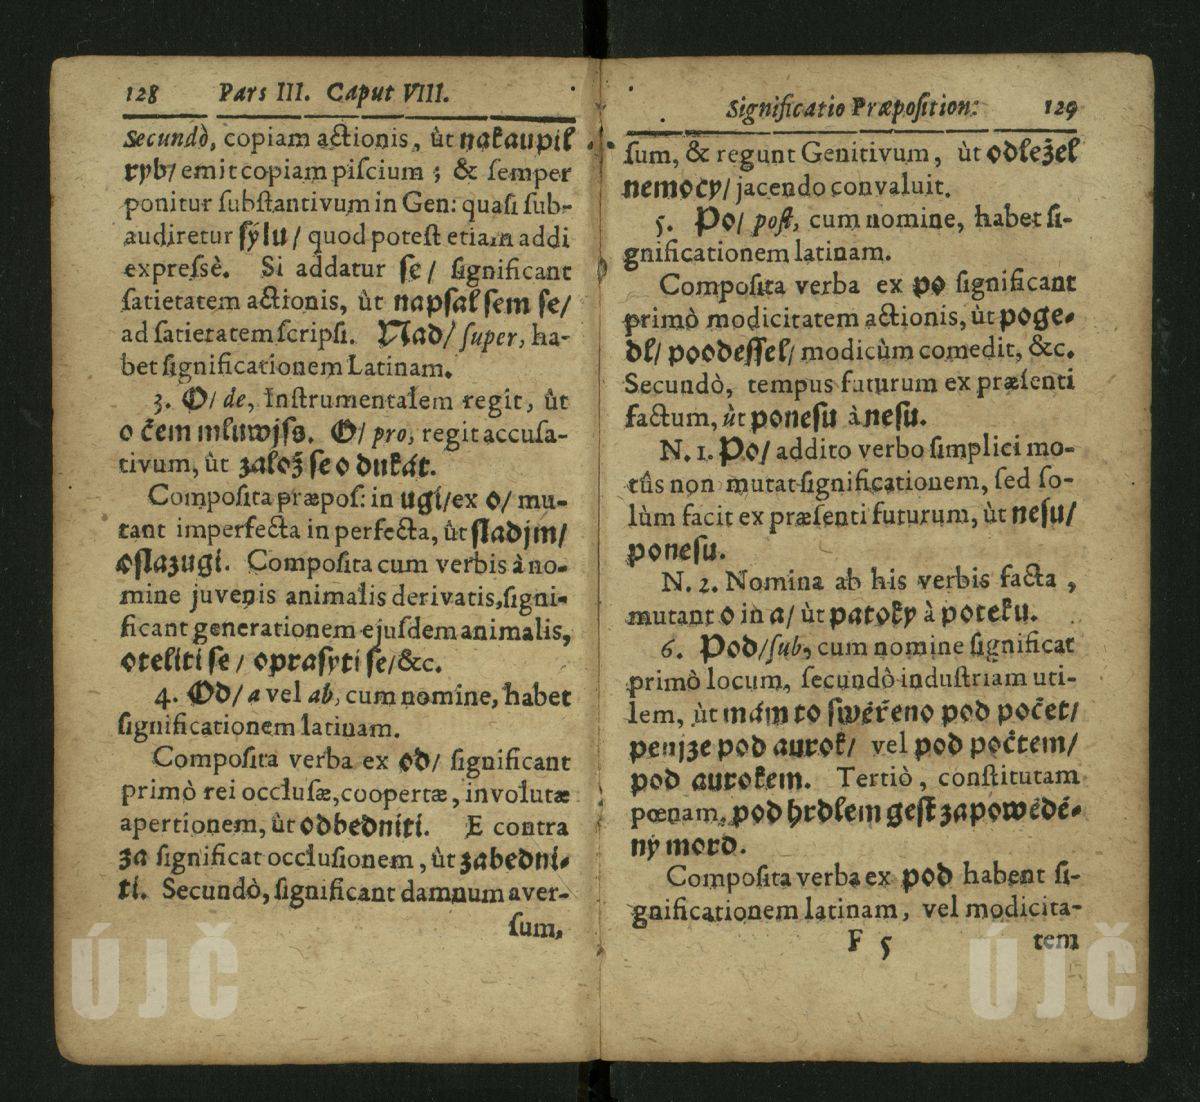 128 Pars III. Caput VIII.
Secundò, copiam actionis, ût nakaupil
ryb/ emit copiam piſcium ; & ſemper
ponitur ſubſtantivum in Gen: quaſi ſub-
audiretur ſylu/ quod poteſt etiam addi
expreſsè. Si addatur ſe/ ſignificant
ſatietatem actionis, ût napſal ſem ſe/
ad ſatietatem ſcripſi. Nad/ ſuper, ha-
bet ſignificationem Latinam.
3. O/ de, Inſtrumentalem regit, ût
o čem mluwjſs. O/ pro, regit accuſa-
tivum, ût založ ſe o dukát.
Compoſita præpoſ: in ugi/ex o/ mu-
tant imperfecta in perfecta, ût ſladjm/
oſlazugi. Compoſita cum verbis à no-
mine juvenis animalis derivatis,ſigni-
ficant generationem ejuſdem animalis,
oteliti ſe/ opraſyti ſe/&c.
4. Od/ a vel ab, cum nomine, habet
ſignificationem latinam.
Compoſita verba ex od/ ſignificant
primò rei occluſæ,coopertæ, involutæ
apertionem, ût odbedniti. E contra
za ſignificat occluſionem, ût zabedni-
ti. Secundò, ſignificant damnum aver-
ſum,
Significatio Præpoſition: 129
ſum, & regunt Genitivum, ût odležel
nemocy/ jacendo convaluit.
5. Po/ poſt, cum nomine, habet ſi-
gnificationem latinam.
Compoſita verba ex po ſignificant
primò modicitatem actionis, ût poge-
dl/ poodeſſel/ modicùm comedit, &c.
Secundò, tempus futurum ex præſenti
factum, ût poneſu à neſu.
N. 1. Po/ addito verbo ſimplici mo-
tûs non mutat ſignificationem, ſed ſo-
lùm facit ex præſenti futurum, ût neſu/
poneſu.
N. 2. Nomina ab his verbis facta,
mutant o in a/ ût patoky à poteku.
6. Pod/ſub, cum nomine ſignificat
primò locum, ſecundò induſtriam uti-
lem, ût mám to ſwéřeno pod počet/
penjze pod aurok/ vel pod počtem/
pod aurokem. Tertiò, conſtitutam
pœnam, pod hrdlem geſt zapowědě-
ný mord.
Compoſita verba ex pod habent ſi-
gnificationem latinam, vel modicita-
F 5 tem
ÚJČ ÚJČ